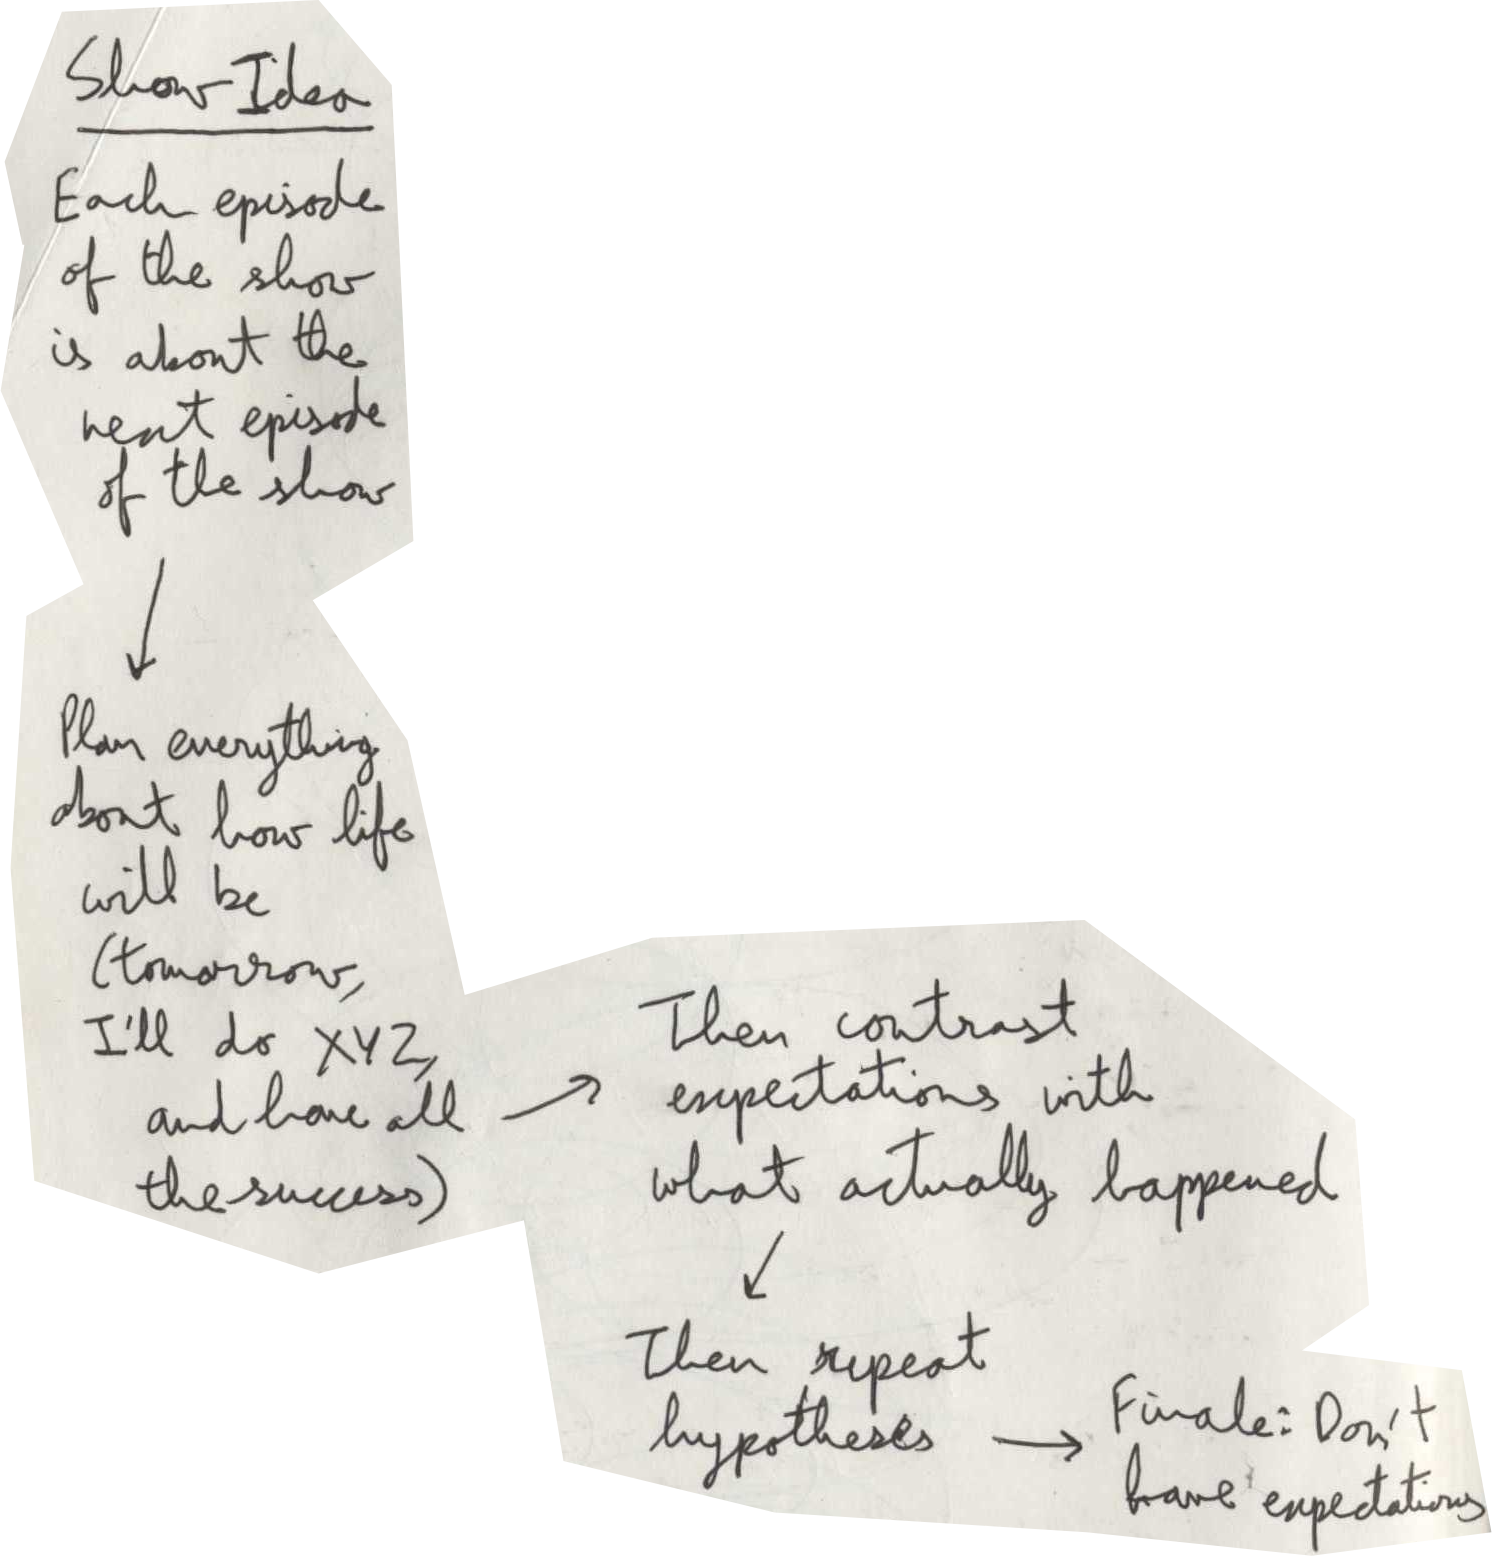 Show Idea
Each episode
of the show
is about the
next episode
of the show
Plan everything
about how life
will be
(tomorrow,
I'll do XYZ,
and have all
the success)
Then contrast
expectations with
what actually happened
Then repeat
hypotheses
Finale: Don't
have expectations